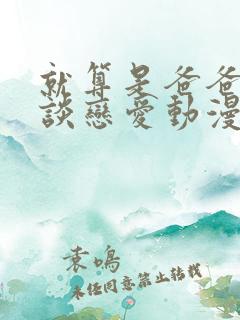 就算是爸爸
談戀愛動漫
袁鳴
未经同意禁止转载